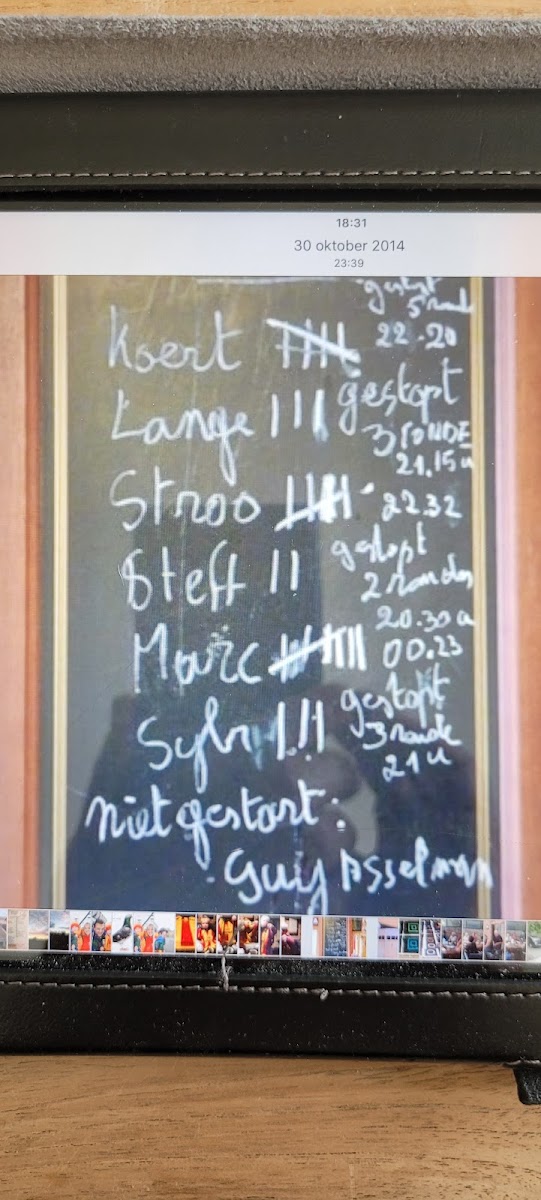 18:31
30 oktober 2014
23:39
gestopt
5 rond
Koert 22.20
Lange III gestopt
3 RONDE
21.15 u
Stroo 22.32
Steff II gestopt
2 rondes
20.30 u
Marc 00.23
Sybr III gestopt
3 ronde
21 u
niet gestart:
Guy Asselman